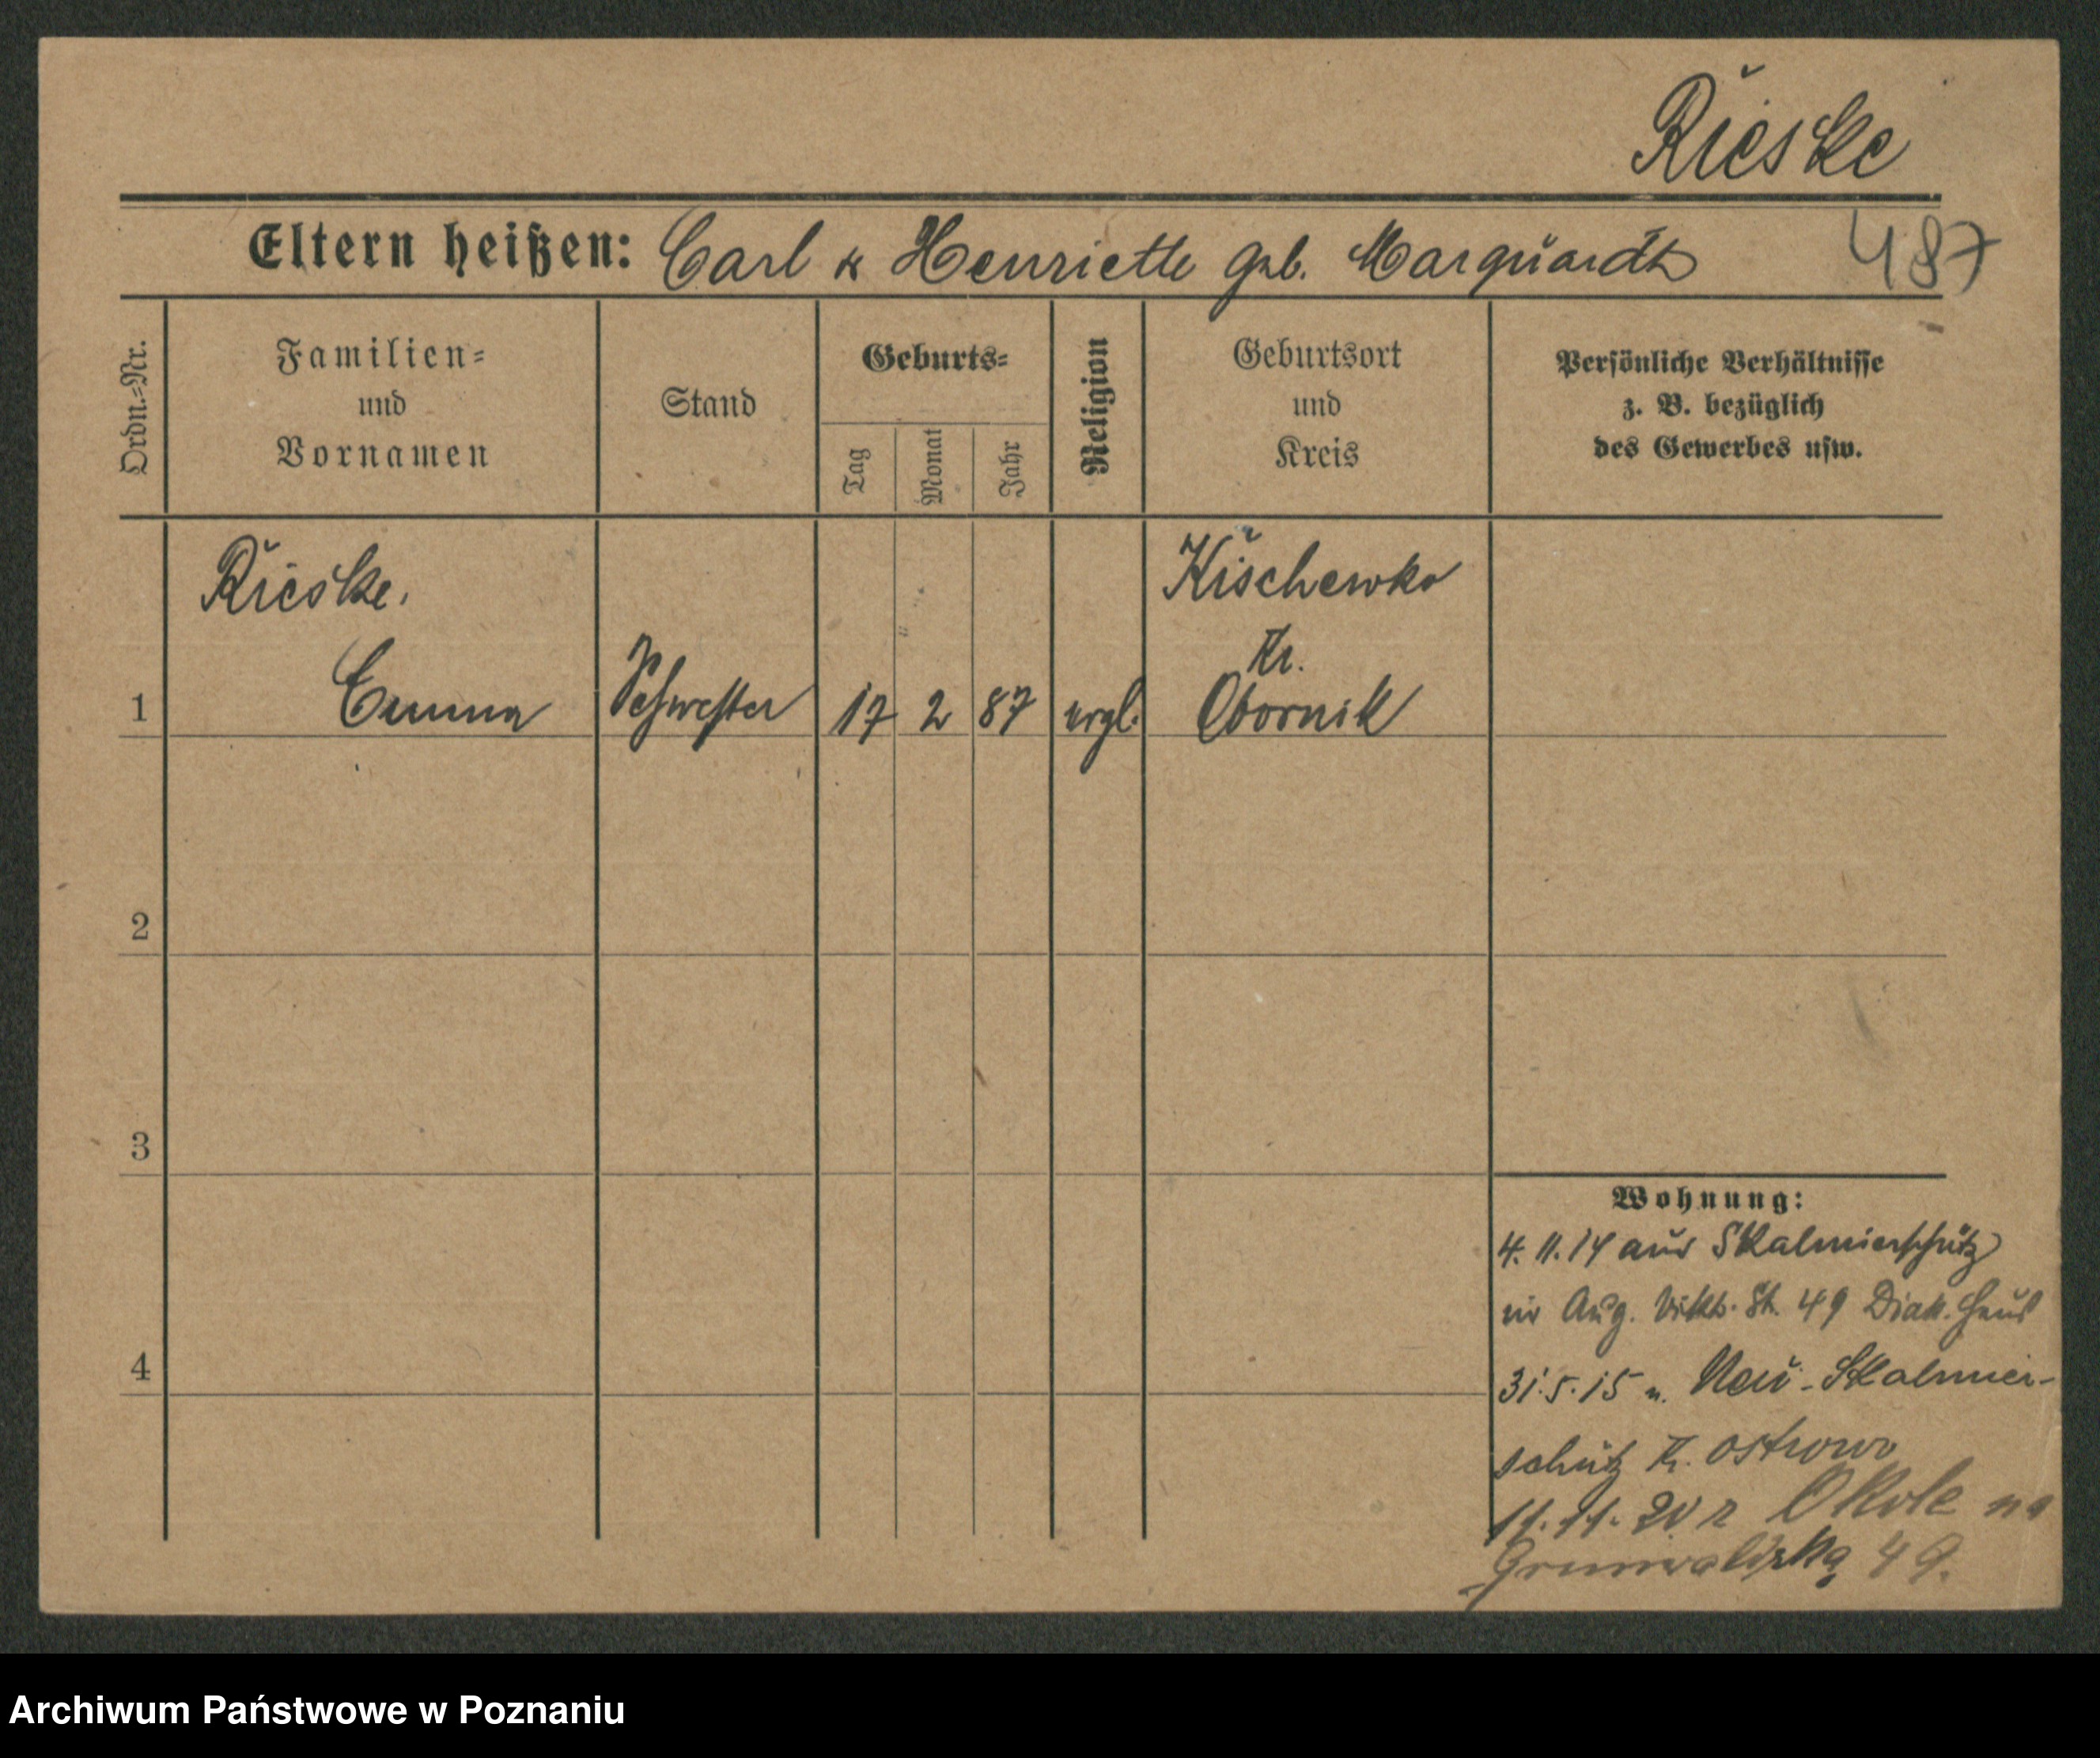 Rieske
Eltern heißen: Carl & Henriette geb. Marquardt 487
Ordn.=Nr.
Familien=
und
Vornamen
Stand
Geburts=
Tag
Monat
Jahr
Religion
Geburtsort
und
Kreis
Persönliche Verhältnisse
z. B. bezüglich
des Gewerbes usw.
Rieske.
Emma
1
Schwester
17 2 87
evgl.
Kischewko
Kr.
Obornik
2
3
4
Wohnung:
4. 11. 14 aus Skalmierschütz
Aug. Vikt. St. 49 Diak. Haus
31. 5. 15 n. Neu-Skalmier-
schütz Kr. Ostrowo
11. 11. 20 z Okole na
Grunwaldzką 49.
Archiwum Państwowe w Poznaniu